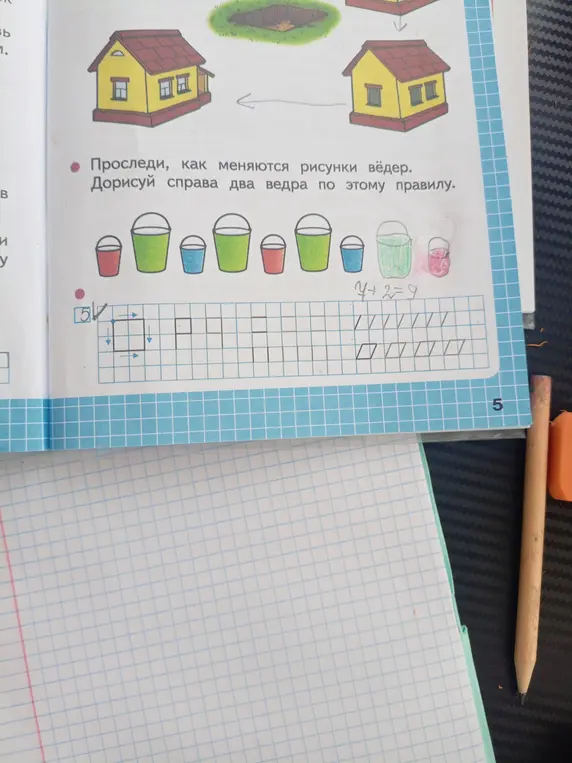 Проследи, как меняются рисунки вёдер.
Дорисуй справа два ведра по этому правилу.
7+2=9
5
5